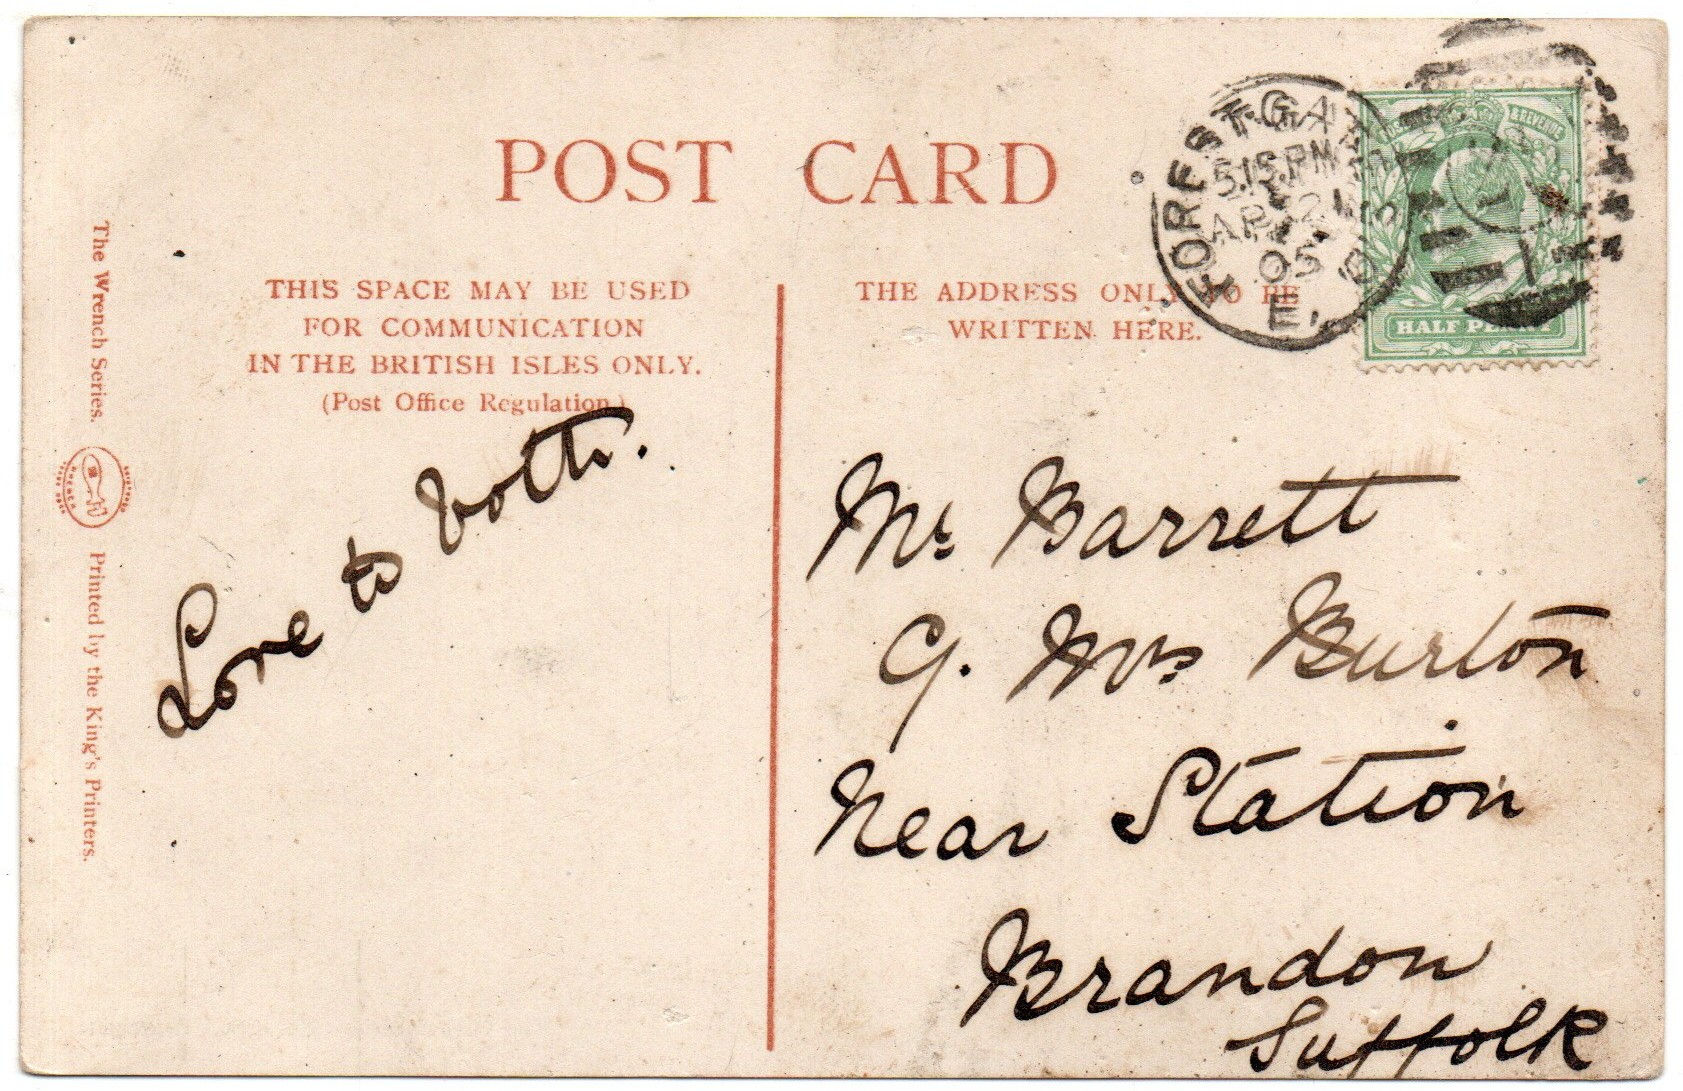 POST CARD
THIS SPACE MAY BE USED
FOR COMMUNICATION
IN THE BRITISH ISLES ONLY.
(Post Office Regulation.)
THE ADDRESS ONLY TO BE
WRITTEN HERE.
FOREST GATE
5.15.PM
AP 21
05
E.
HALF PENNY
& REVENUE
The Wrench Series.
Printed by the King's Printers.
Love to both.
Mr Barrett
C/. Mrs Burton
Near Station
Brandon
Suffolk